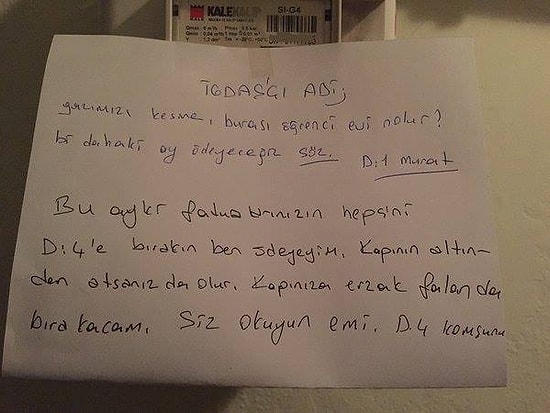 KALEKALIP
SI-G4
İGDAŞ'ÇI ABİ;
gazımızı kesme, burası öğrenci evi nolur?
bi dahaki ay ödeyeceğiz söz. D:1 Murat
Bu ayki faturalarınızın hepsini
D:4'e bırakın ben ödeyeyim. Kapının altın-
dan atsanız da olur. Kapınıza erzak falan da
bırakacam. Siz okuyun emi. D.4 komşunuz